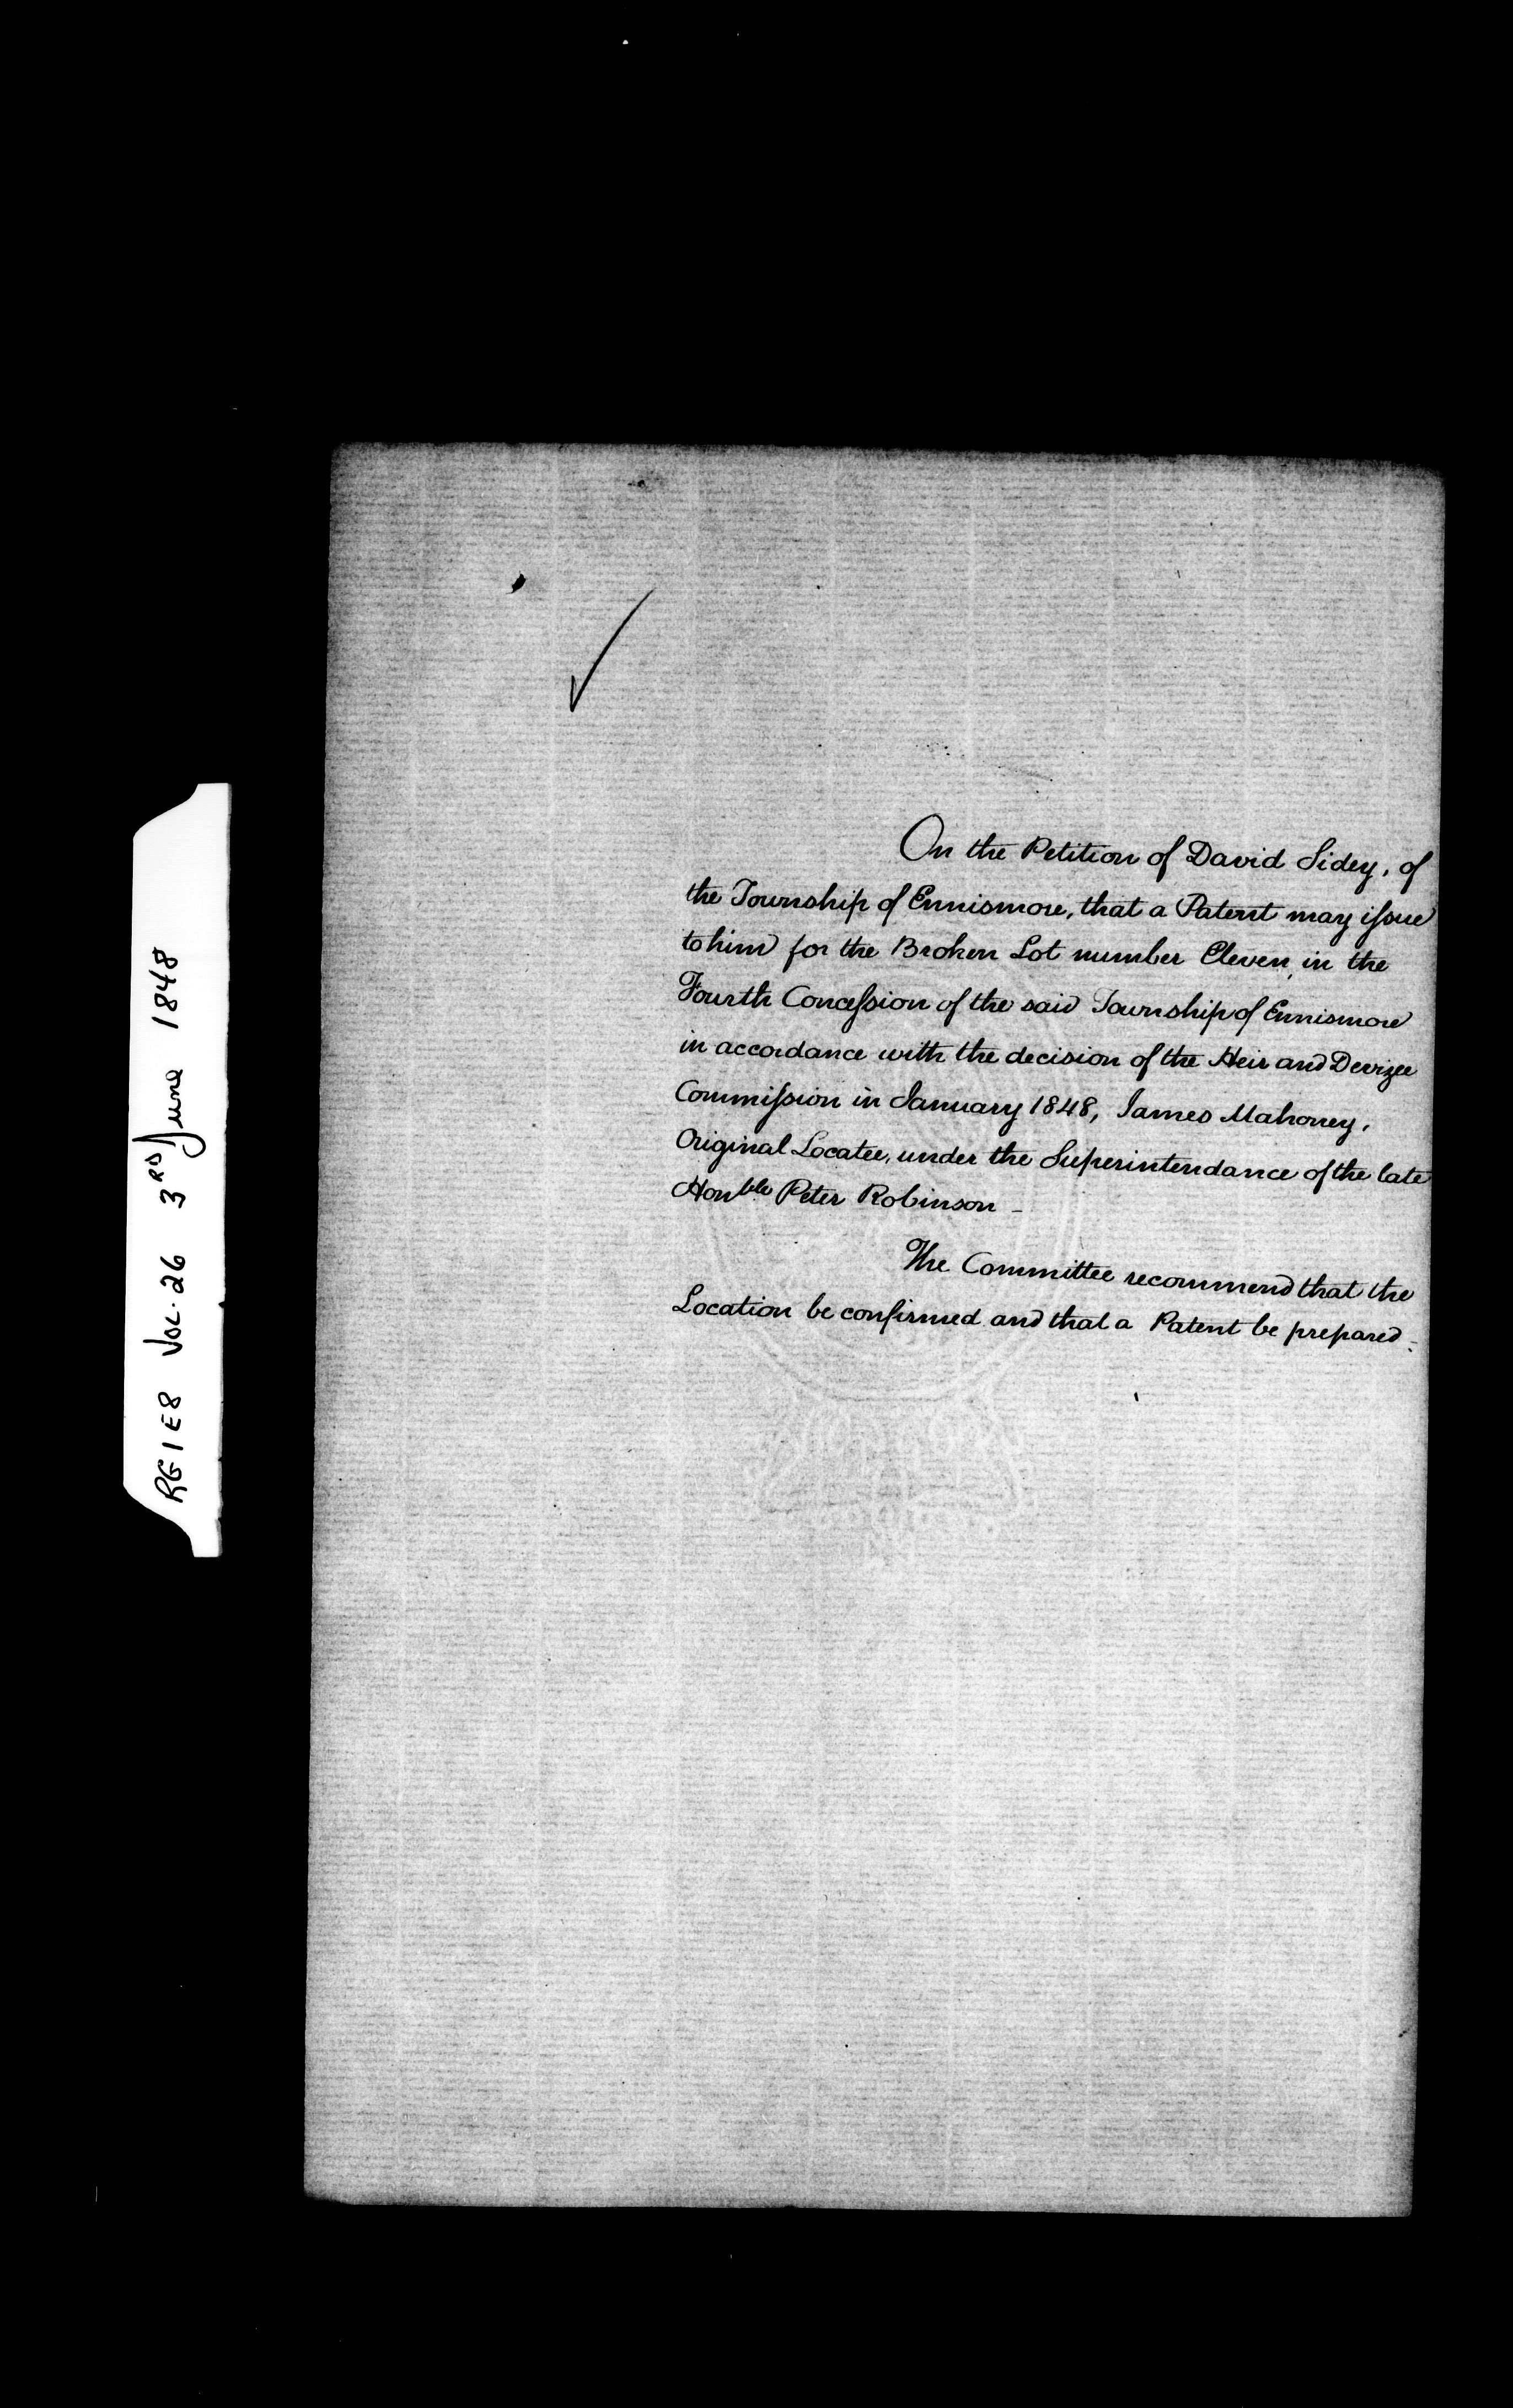 RG 1 E8 Vol. 26 3RD June 1848
On the Petition of David Sidey, of
the Township of Ennismore, that a Patent may issue
to him for the Broken Lot number Eleven, in the
Fourth Concession of the said Township of Ennismore
in accordance with the decision of the Heir and Devizee
Commission in January 1848, James Mahoney,
Original Locatee, under the Superintendance of the late
Honble Peter Robinson –
The Committee recommend that the
Location be confirmed and that a Patent be prepared –